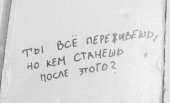 ТЫ ВСЁ ПЕРЕЖИВЁШЬ,
НО КЕМ СТАНЕШЬ
ПОСЛЕ ЭТОГО?